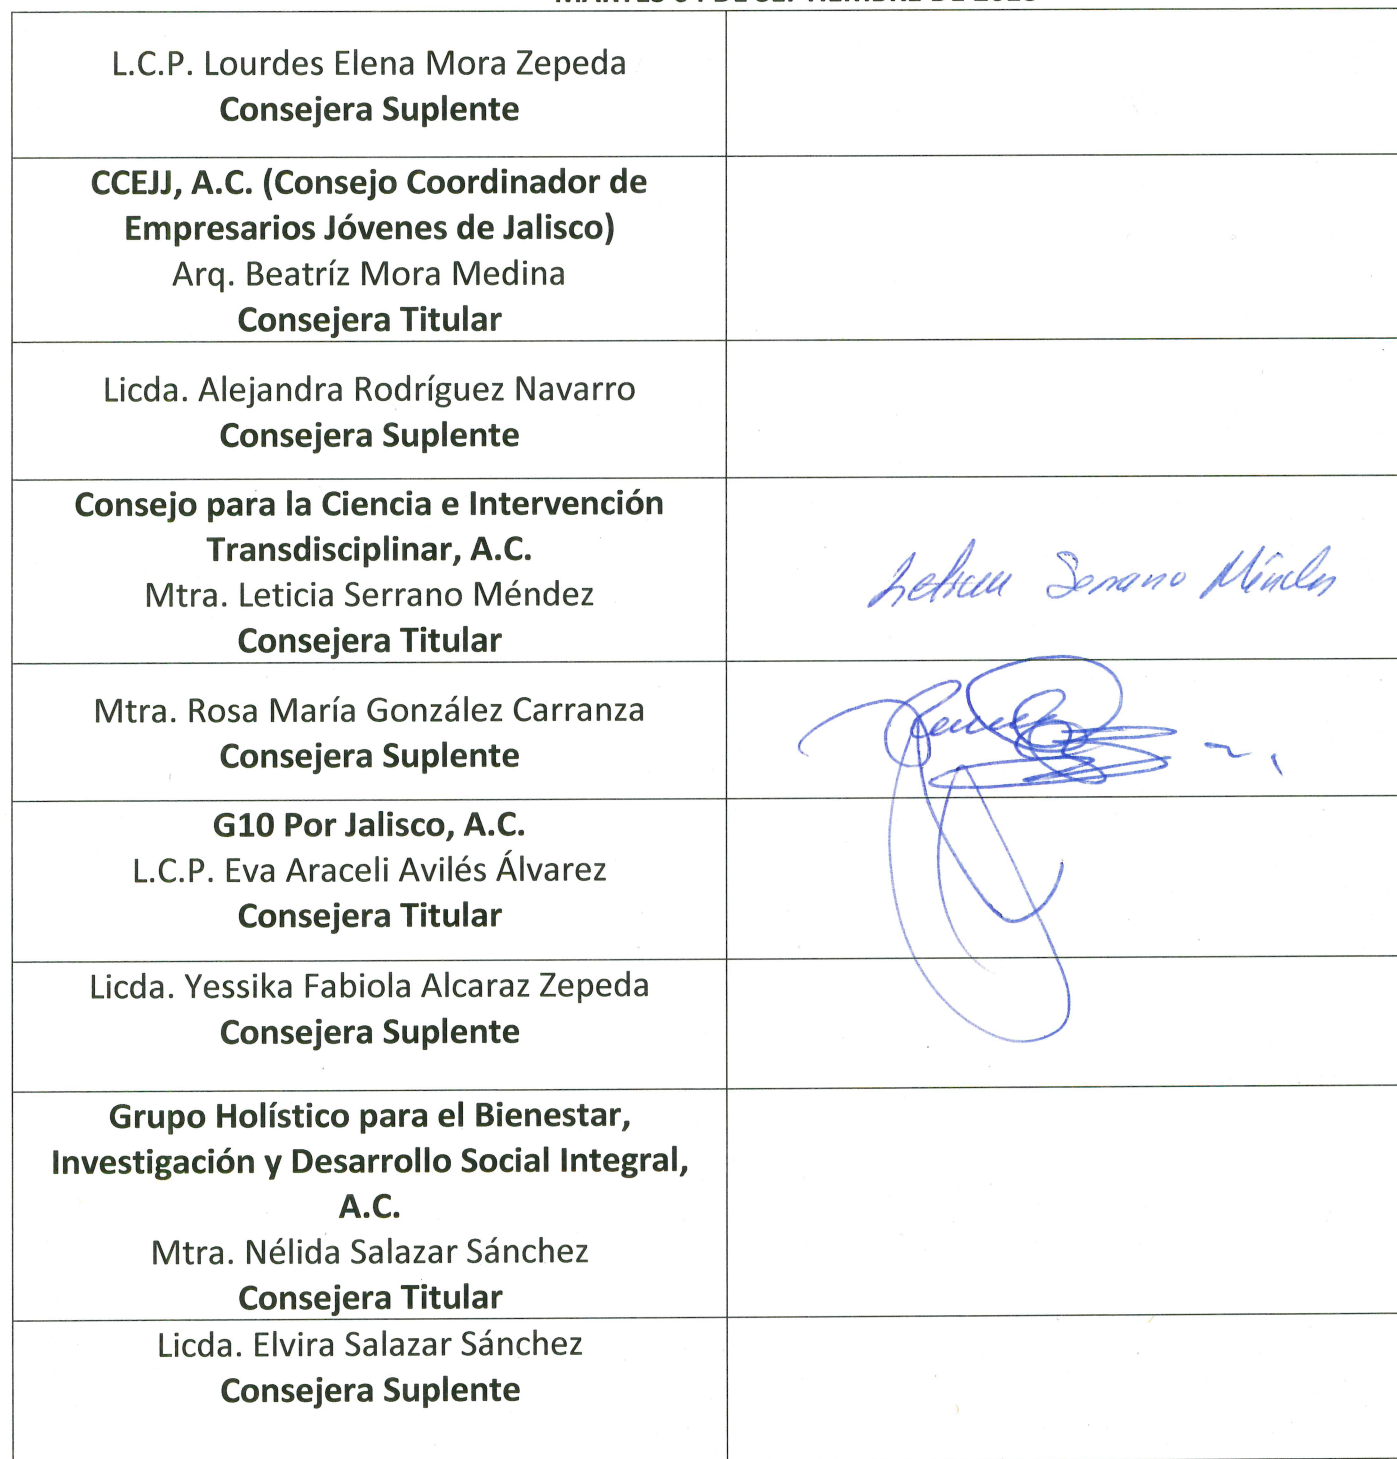 MARTES 04 DE SEPTIEMBRE DE 2018
L.C.P. Lourdes Elena Mora Zepeda
Consejera Suplente
CCEJJ, A.C. (Consejo Coordinador de
Empresarios Jóvenes de Jalisco)
Arq. Beatríz Mora Medina
Consejera Titular
Licda. Alejandra Rodríguez Navarro
Consejera Suplente
Consejo para la Ciencia e Intervención
Transdisciplinar, A.C.
Mtra. Leticia Serrano Méndez
Consejera Titular
Leticia Serrano Méndez
Mtra. Rosa María González Carranza
Consejera Suplente
G10 Por Jalisco, A.C.
L.C.P. Eva Araceli Avilés Álvarez
Consejera Titular
Licda. Yessika Fabiola Alcaraz Zepeda
Consejera Suplente
Grupo Holístico para el Bienestar,
Investigación y Desarrollo Social Integral,
A.C.
Mtra. Nélida Salazar Sánchez
Consejera Titular
Licda. Elvira Salazar Sánchez
Consejera Suplente